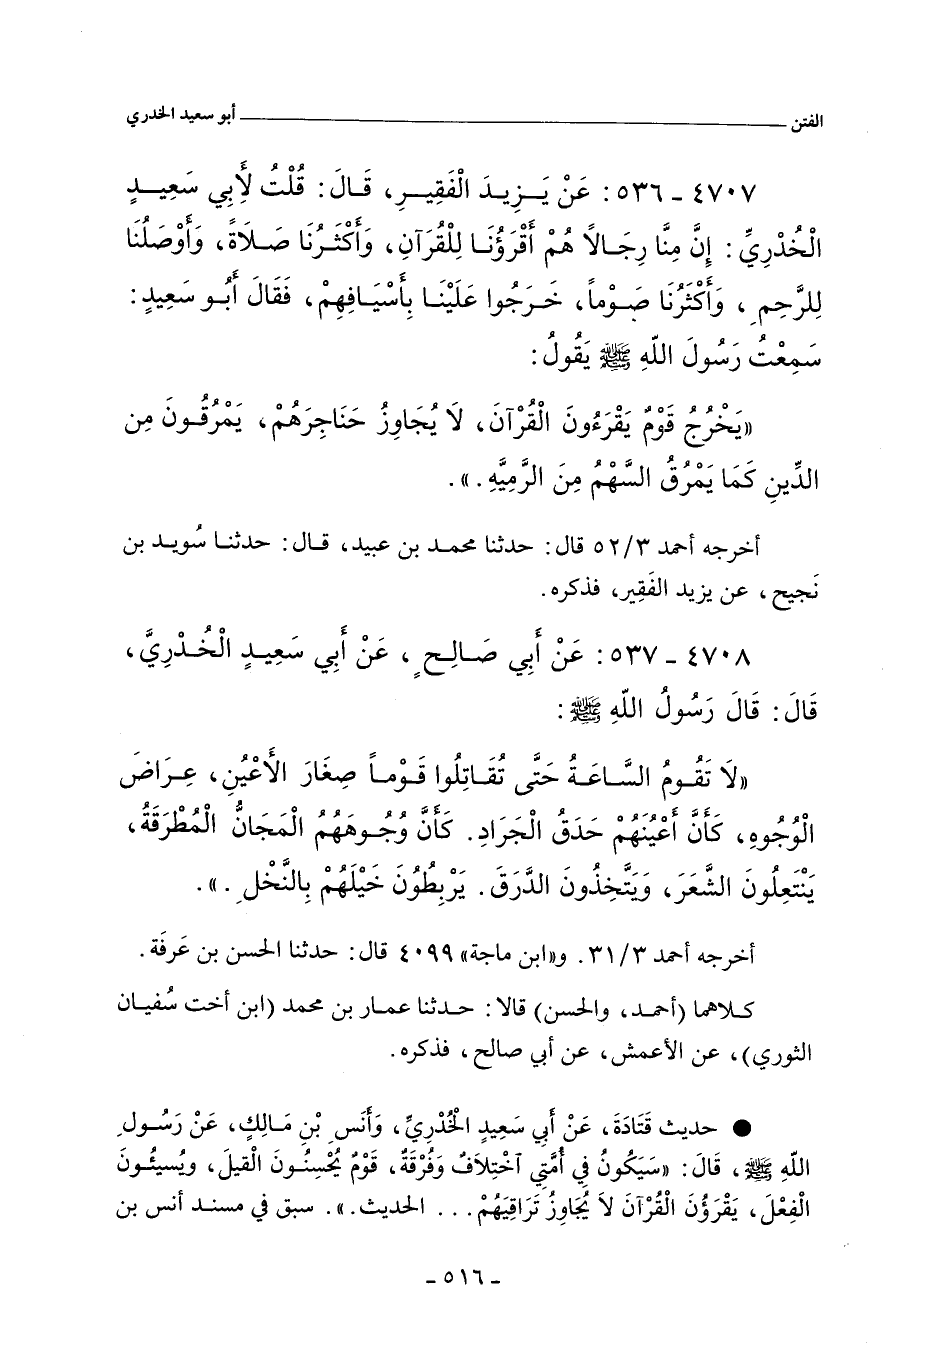 الفتن ــــــــــ أبو سعيد الخدري
٤٧٠٧ ـ ٥٣٦ : عَنْ يَزِيدَ الْفَقِيرِ، قَالَ : قُلْتُ لِأَبِي سَعِيدٍ
الْخُدْرِيِّ : إِنَّ مِنَّا رِجَالاً هُمْ أَقْرَؤُنَا لِلْقُرَآنِ، وَأَكْثَرُنَا صَلَاةً، وَأَوْصَلُنَا
لِلرَّحِمِ، وَأَكْثَرُنَا صَوْماً، خَرَجُوا عَلَيْنَا بِأَسْيَافِهِمْ، فَقَالَ أَبُو سَعِيدٍ :
سَمِعْتُ رَسُولَ اللّهِ ﷺ يَقُولُ :
«يَخْرُجُ قَوْمٌ يَقْرَءُونَ الْقُرْآنَ، لَا يُجَاوِزُ حَنَاجِرَهُمْ، يَمْرُقُونَ مِن
الدِّينِ كَمَا يَمْرُقُ السَّهْمُ مِنَ الرَّمِيَّهِ . » .
أخرجه أحمد ٥٢/٣ قال : حدثنا محمد بن عبيد، قال : حدثنا سُويد بن
نَجيح، عن يزيد الفَقِير، فذكره .
٤٧٠٨ ـ ٥٣٧ : عَنْ أَبِي صَالِحٍ، عَنْ أَبِي سَعِيدٍ الْخُدْرِيَّ،
قَالَ : قَالَ رَسُولُ اللّهِ ﷺ :
«لَا تَقُومُ السَّاعَةُ حَتَّى تُقَاتِلُوا قَوْماً صِغَارَ الأَعْيُنِ، عِرَاضَ
الْوُجُوهِ، كَأَنَّ أَعْيُنَهُمْ حَدَقُ الْجَرَادِ. كَأَنَّ وُجُوهَهُمُ الْمَجَانُّ الْمُطْرَقَةُ،
يَنْتَعِلُونَ الشَّعَرَ، وَيَتَّخِذُونَ الدَّرَقَ. يَرْبِطُوُنَ خَيْلَهُمْ بِالنَّخْلِ . » .
أخرجه أحمد ٣١/٣. و«ابن ماجة» ٤٠٩٩ قال : حدثنا الحسن بن عَرفَة .
كلاهما (أحمد، والحسن) قالا : حدثنا عمار بن محمد (ابن أخت سُفيان
الثوري)، عن الأعمش، عن أبي صالح، فذكره .
● حديث قَتَادَةَ، عَنْ أَبِي سَعِيدٍ الْخُدْرِيِّ، وَأَنَسِ بْنِ مَالِكٍ، عَنْ رَسُولِ
اللّهِ ﷺ، قَالَ : «سَيَكُونُ فِي أُمَّتِي آخْتِلَافٌ وَفُرْقَةٌ، قَوْمٌ يُحْسِنُونَ الْقِيلَ، ويُسيئُونَ
الْفِعْلَ، يَقْرَؤُنَ الْقُرْآنَ لَا يُجَاوِزُ تَرَاقِيَهُمْ . . . الحديث . » . سبق في مسند أنس بن
ـ ٥١٦ ـ